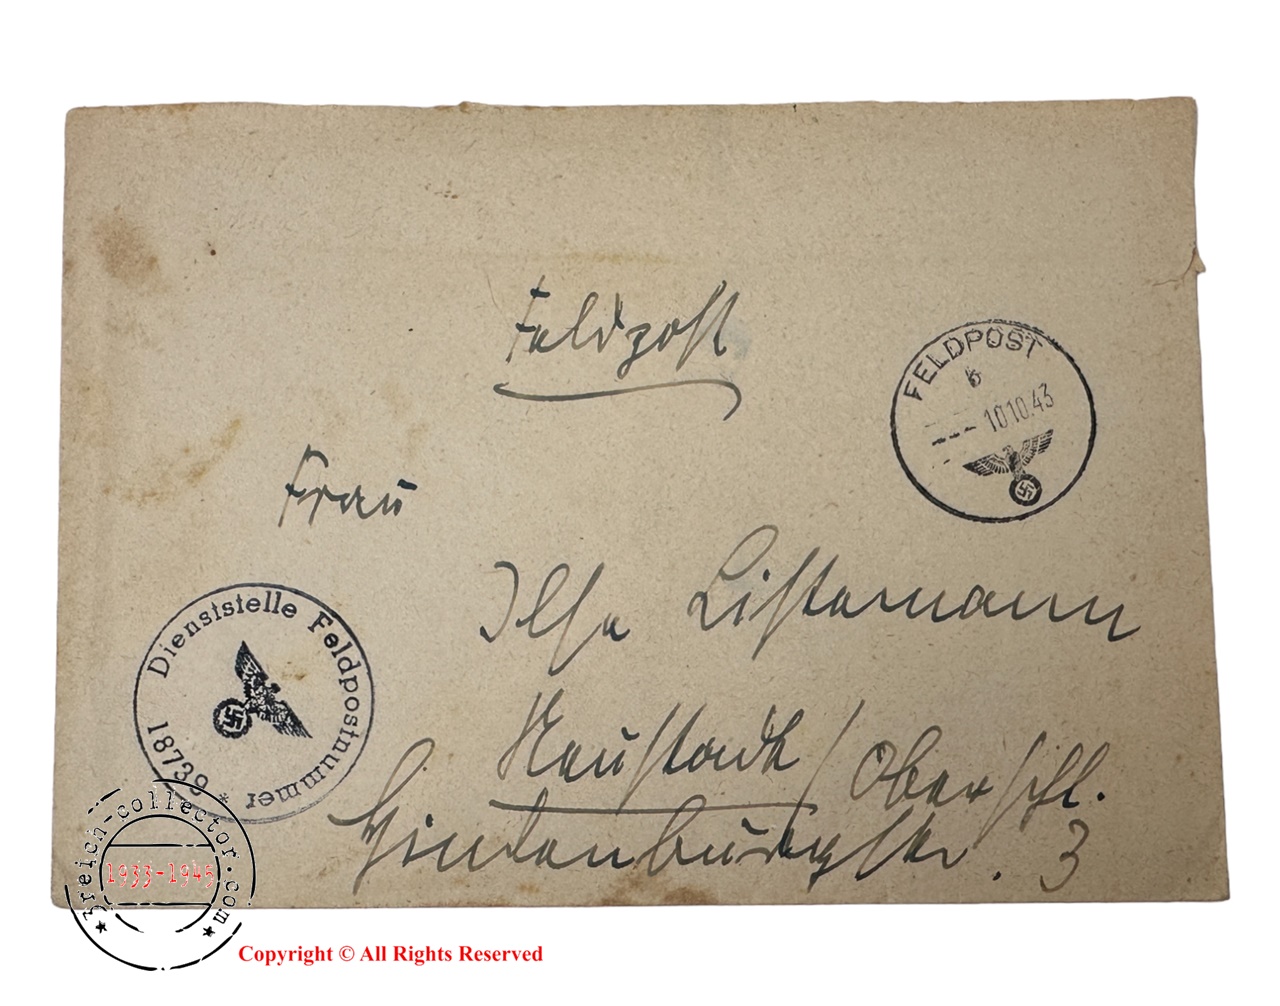 Feldpost
FELDPOST
b
10.10.43
Frau
Ilse Listemann
Dienststelle Feldpostnummer
* 18739
Neustadt / Oberschl.
Hindenburgstr. 3
3reich-collector.com
1933-1945
Copyright © All Rights Reserved